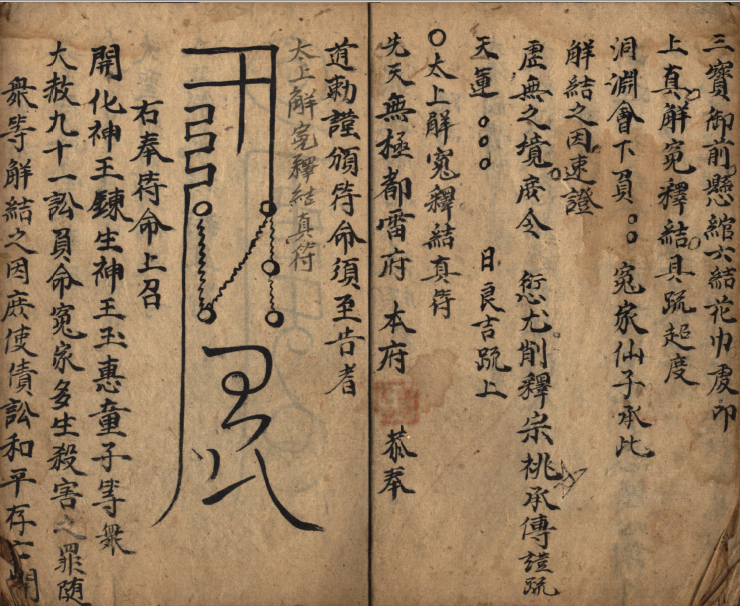 三寶御前懸綰六結花巾虔叩
上真解冤釋結具疏超度
洞淵會下員○○冤家仙子承此
解結之因速證
虛無之境庶令 愆尤削釋宗祧承傳謹疏
天運○○○ 日良吉疏上
○太上解冤釋結真符
先天無極都雷府 本府 恭奉
道勅謹頒符命須至告者
太上解冤釋結真符
右奉符命上召
開化神王鍊生神王玉惠童子等衆
大赦九十一訟員命冤家多生殺害之罪隨
衆等解結之因庶使債訟和平存亡開